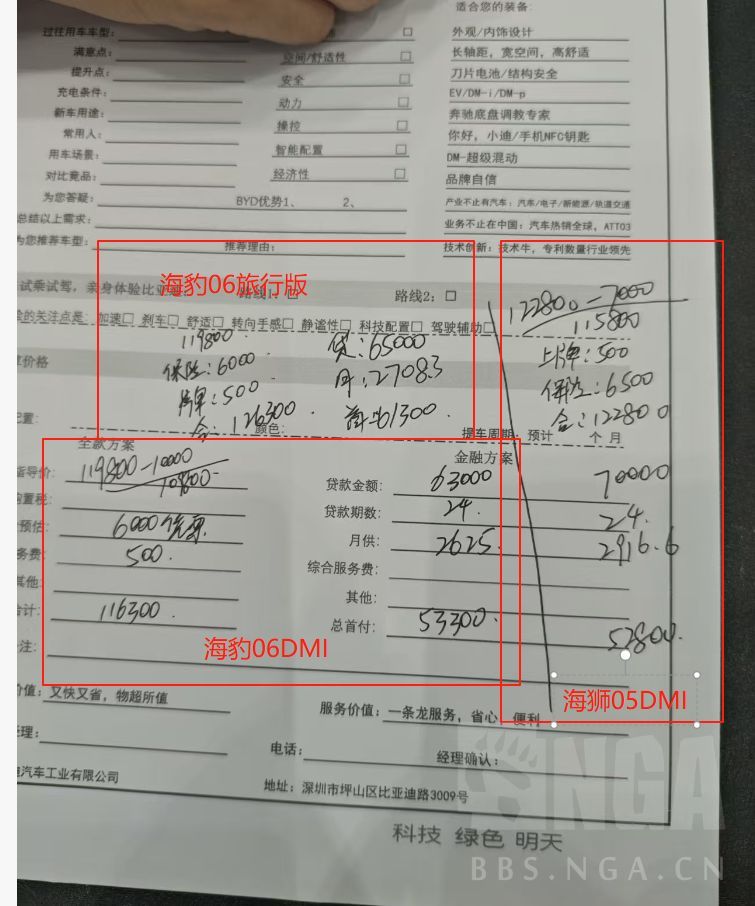 适合您的装备:
过往用车车型:
外观/内饰设计
满意点:
空间/舒适性
长轴距，宽空间，高舒适
提升点:
安全
刀片电池/结构安全
充电条件:
动力
EV/DM-i/DM-p
新车用途:
操控
奔驰底盘调教专家
常用人:
智能配置
你好，小迪/手机NFC钥匙
用车场景:
经济性
DM-超级混动
对比竞品:
品牌自信
为您答疑:
BYD优势1、 2、
产业不止有汽车：汽车/电子/新能源/轨道交通
总结以上需求:
业务不止在中国：汽车热销全球，ATTO3
为您推荐车型:
推荐理由:
技术创新：技术牛，专利数量行业领先
试乘试驾，亲身体验比亚迪
海豹06旅行版
路线1:
路线2: □
122800-7000
115800
的关注点是: 加速□ 刹车□ 舒适□ 转向手感□ 静谧性□ 科技配置□ 驾驶辅助□
119800
贷:65000
上牌:500
价格
保险:6000
月:2708.3
保险:6500
牌:500
合:122800
合:126300
首付:61300
配置:
颜色:
提车周期: 预计 个月
全款方案
金融方案
指导价:
119800-10000
109800
贷款金额: 63000
70000
购置税:
贷款期数: 24
24
预估: 6000
月供: 2625
2916.6
务费: 500
综合服务费:
其他:
其他:
合计: 116300
总首付: 53300
52800
注:
海豹06DMI
海狮05DMI
价值: 又快又省，物超所值
服务价值: 一条龙服务，省心、便利
经理:
电话:
经理确认:
汽车工业有限公司
地址: 深圳市坪山区比亚迪路3009号
科技 绿色 明天
NGA
BBS.NGA.CN